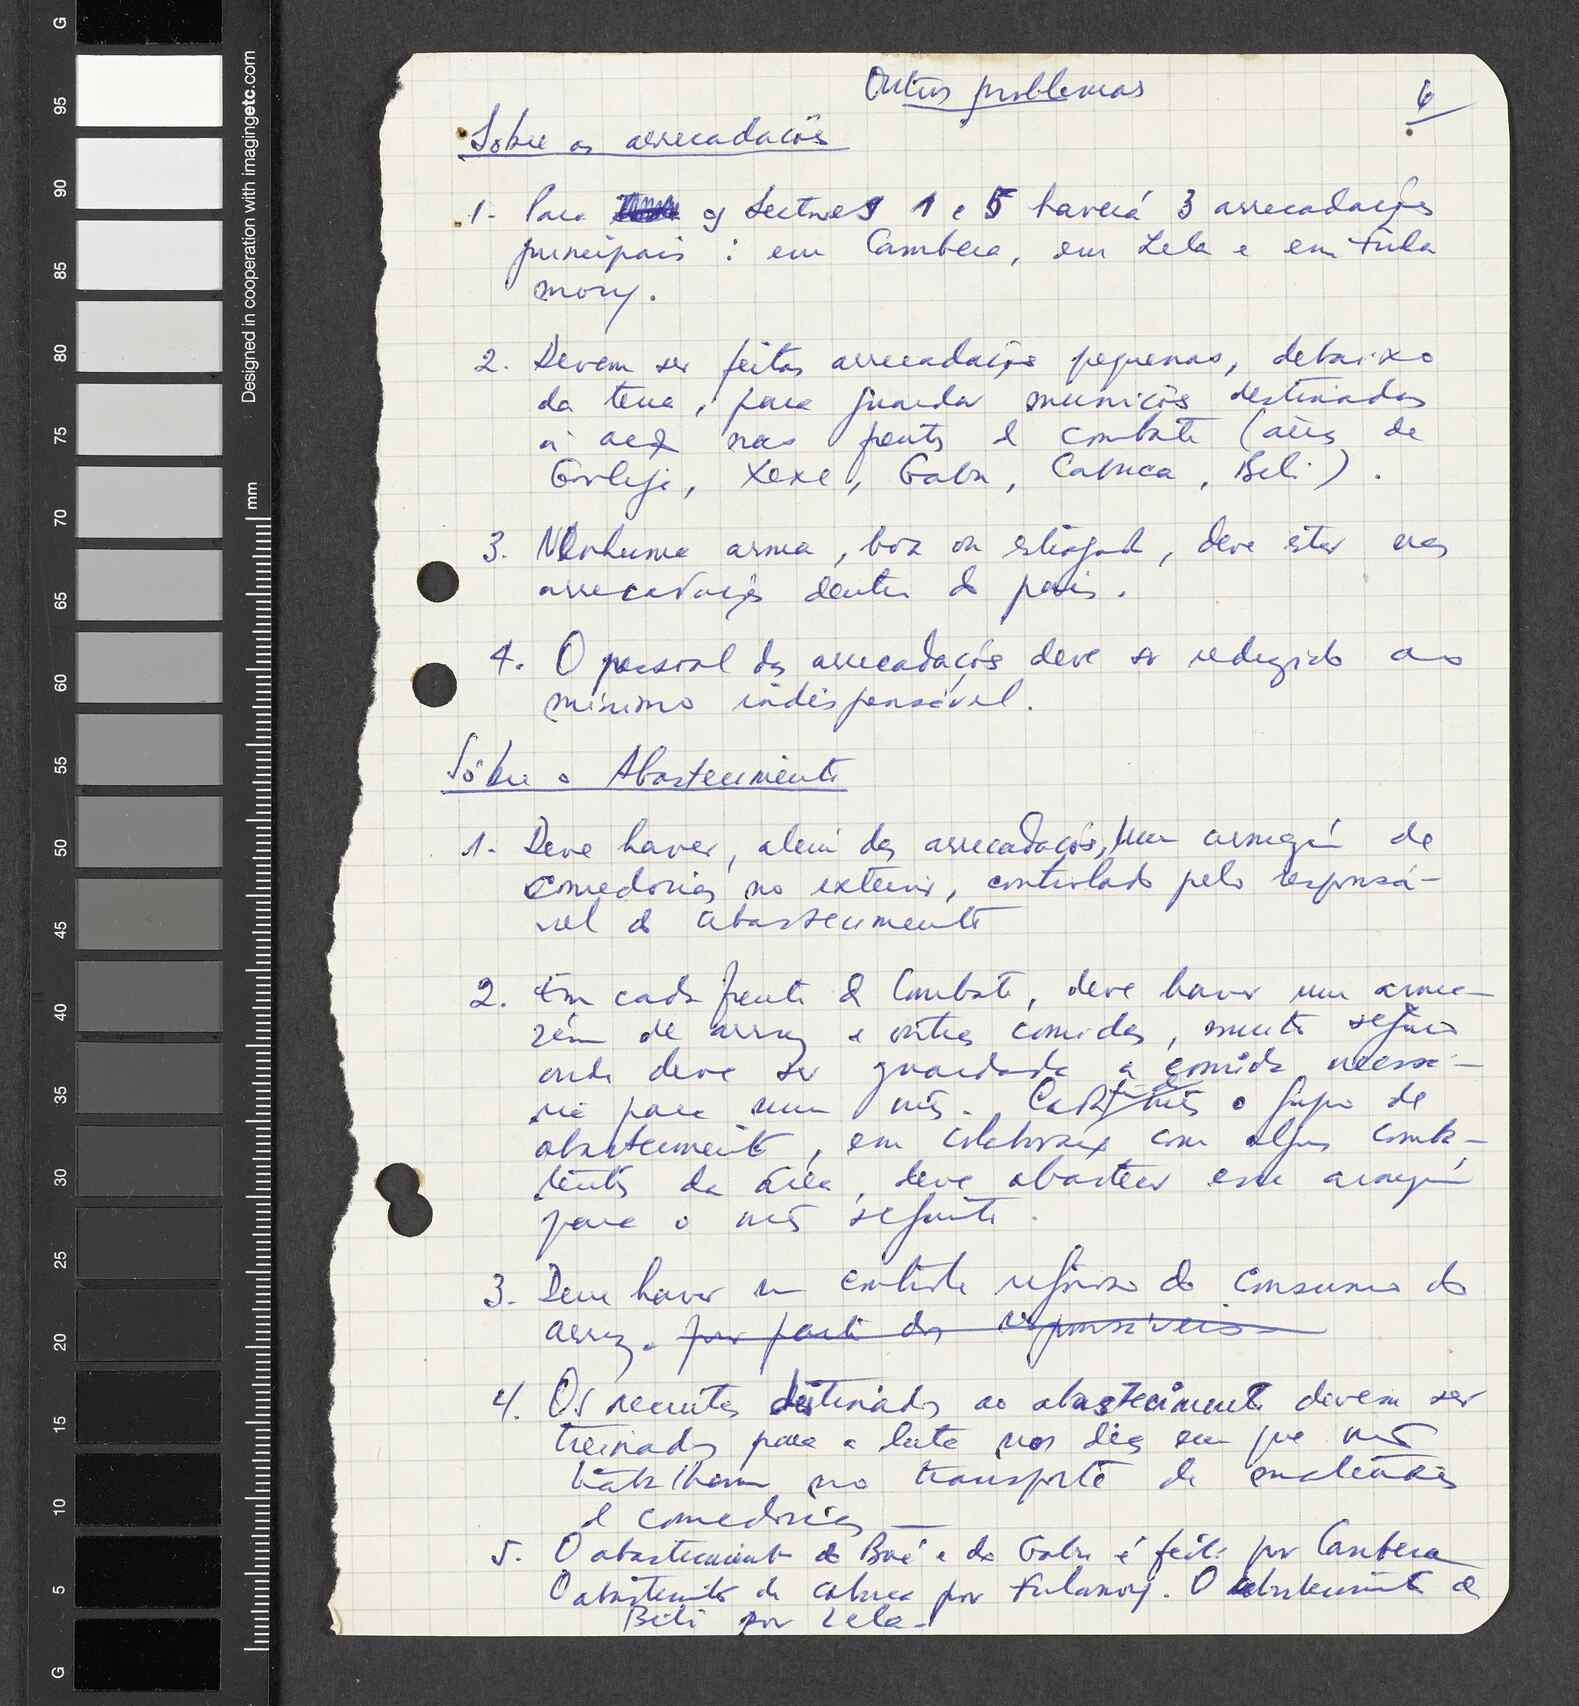 Outros problemas
6
Sobre as arrecadações
1. Para os Sectores 1 e 5 haverá 3 arrecadações
principais : em Cambera, em Lela e em Fula
mory.
2. Devem ser feitas arrecadações pequenas, debaixo
da terra, para guardar munições destinadas
à acção nas frentes de combate (áreas de
Xexe, Gabu, Cabuca, Béli).
3. Nenhuma arma, boa ou estragada, deve estar nas
arrecadações dentro do país.
4. O pessoal das arrecadações deve ser reduzido ao
mínimo indispensável.
Sôbre o Abastecimento
1. Deve haver, além das arrecadações, um armazém de
comedorias no exterior, controlado pelo responsá-
vel do abastecimento
2. Em cada frente de Combate, deve haver um arma-
zém de arroz e outras comidas, muito seguro
onde deve ser guardada a comida necessá-
ria para um mês. Cada mês o grupo de
abastecimento, em colaboração com alguns comba-
tentes da área, deve abastecer esse armazém
para o mês seguinte.
3. Deve haver um contrôle rigoroso do consumo do
arroz. por parte dos responsáveis
4. Os recrutas destinados ao abastecimento devem ser
treinados para a luta nos dias em que não
trabalham no transporte de materiais
e comedorias
5. O abastecimento do Boé e do Gabu é feito por Cambera
O abastecimento de Cabuca por Fulamory. O abastecimento de
Béli por Lela.
G
95
90
85
80
75
70
65
60
55
50
45
40
35
30
25
20
15
10
5
G
Designed in cooperation with imagingetc.com
mm